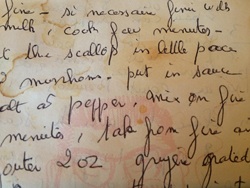 fine - si necessaire finir with
milk, cook few minutes -
t the scallop in little piece
2 murshoms. put in sauce
alt as pepper, mix on fire
minutes, take from fire a
outer 2 oz gruyère grated